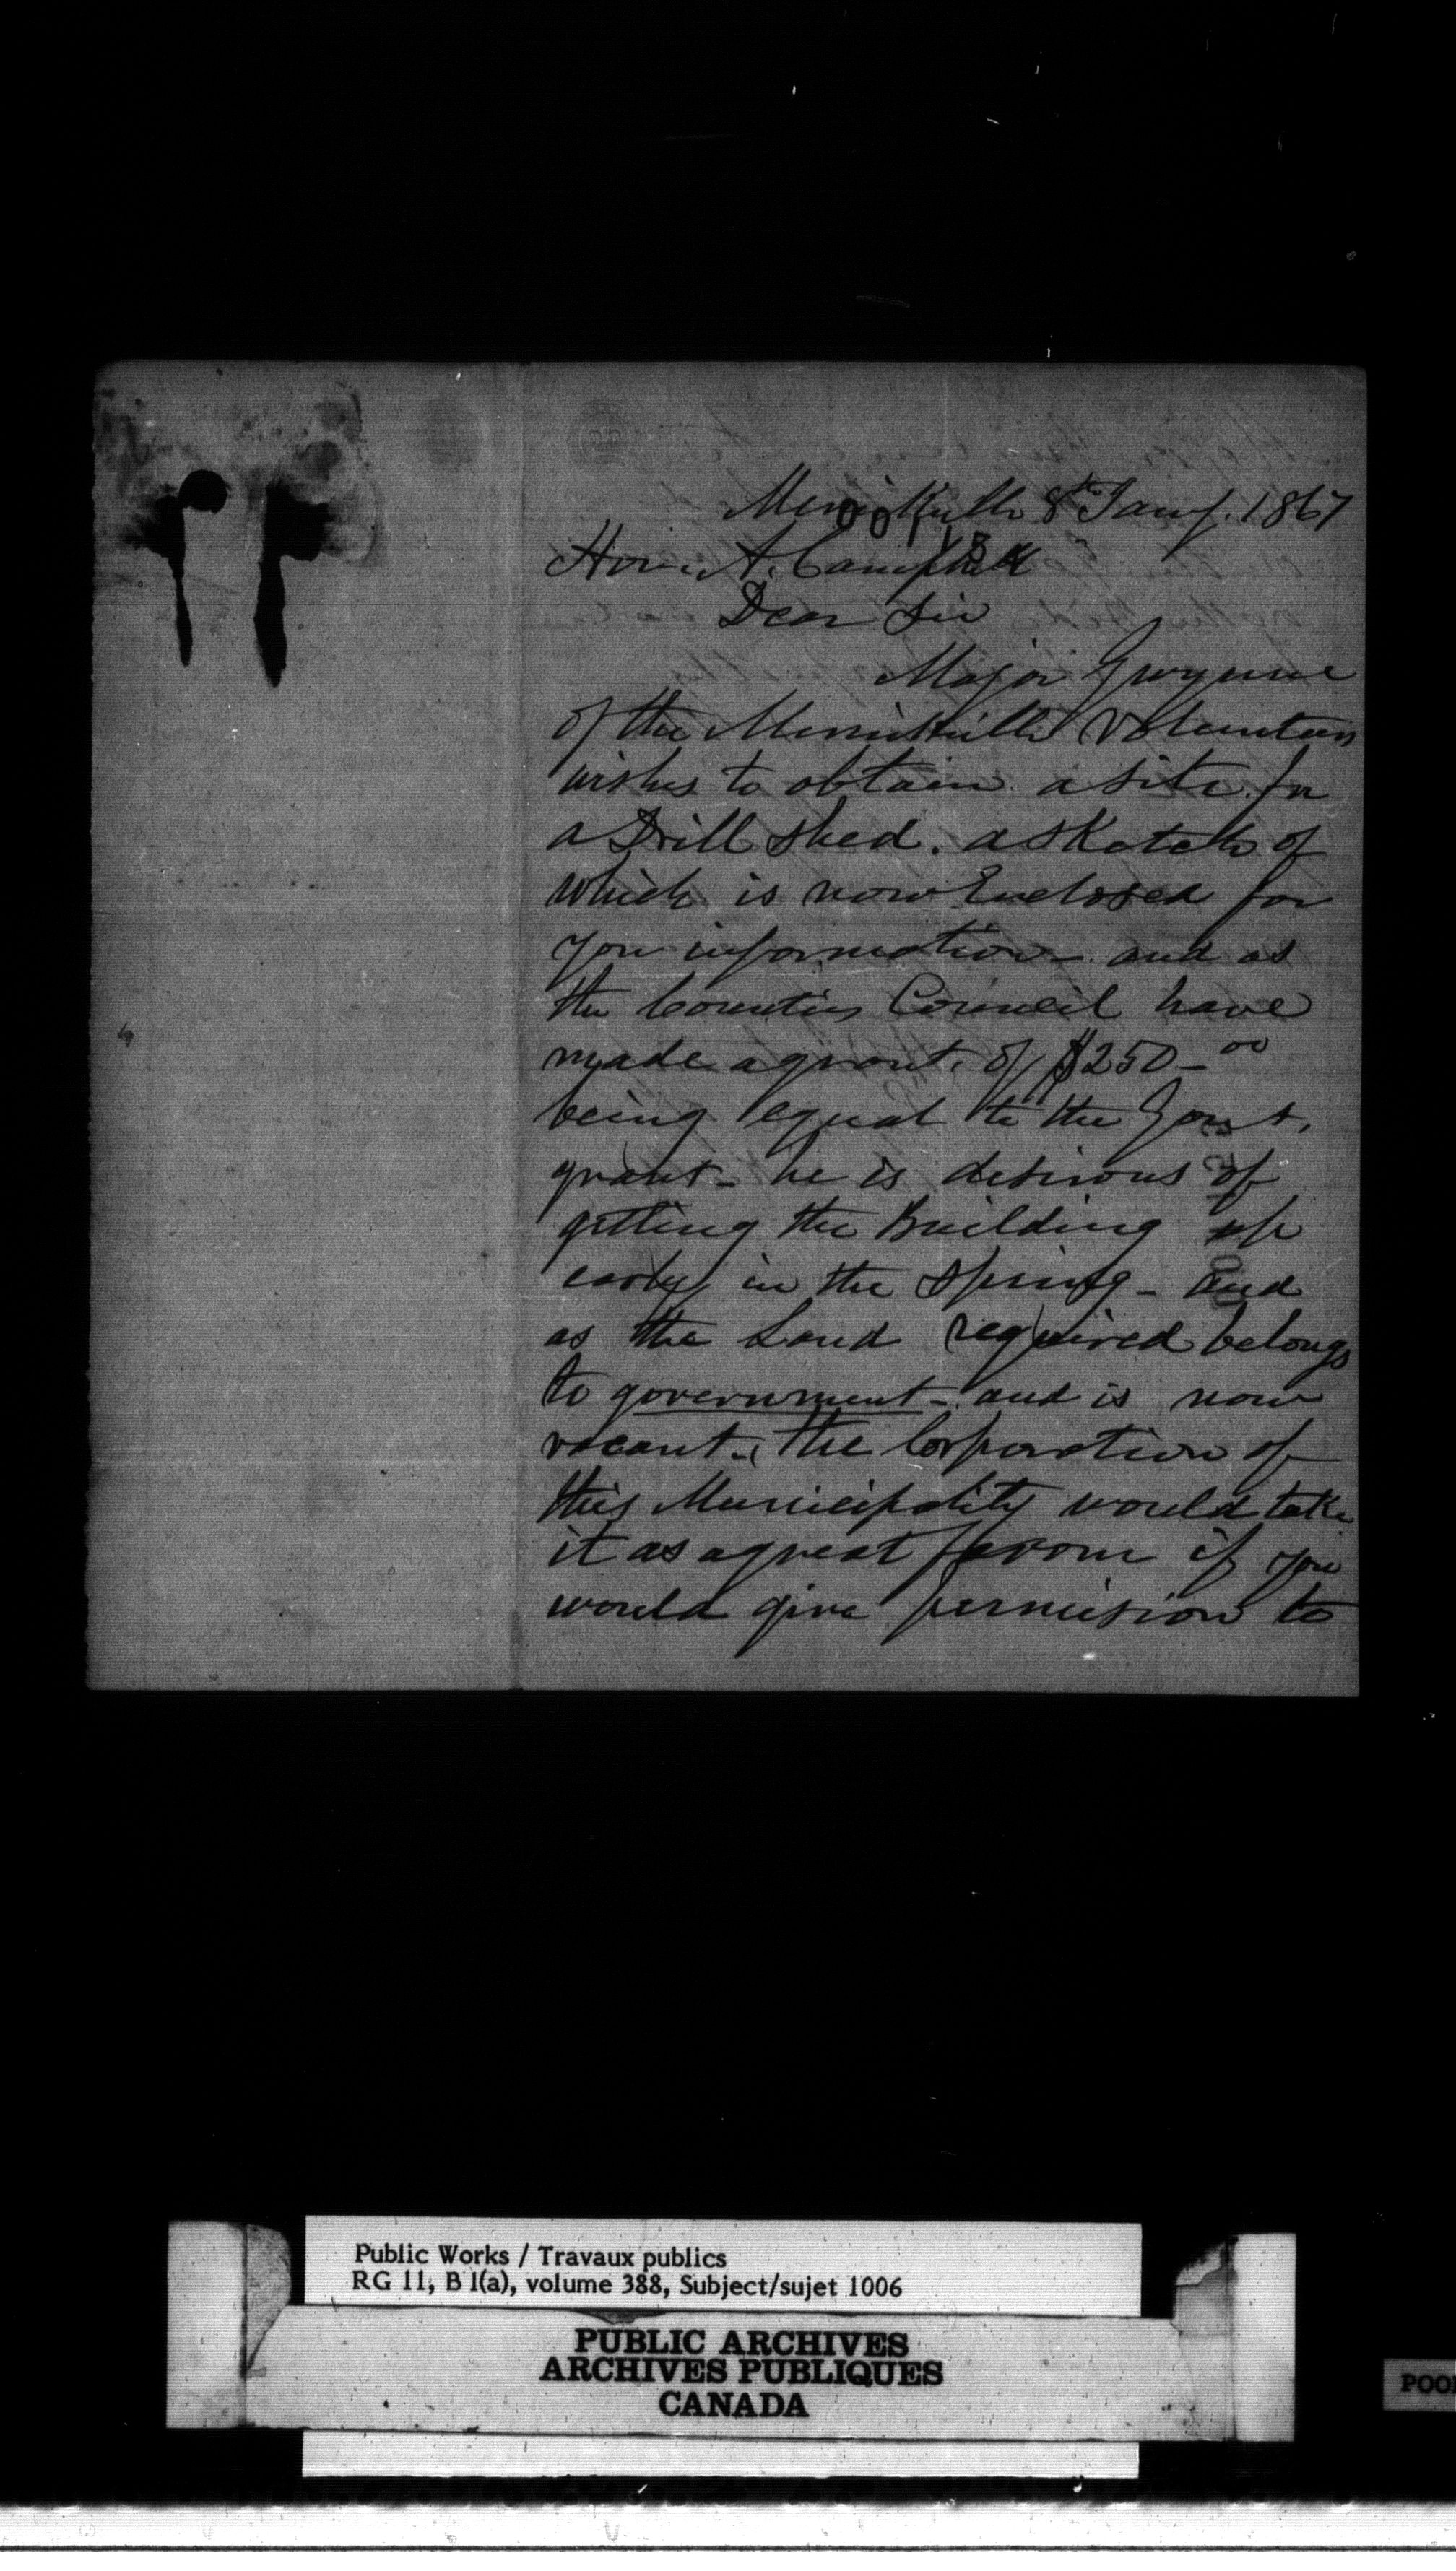 Merrickville 8th Jany. 1867
Hon. A. Campbell
Dear Sir
Major Gwynne
of the Merrickville Volunteers
wishes to obtain a site for
a Drill shed. a sketch of
which is now Enclosed for
you information - and as
the Counties Council have
made a grant of $250-00
being equal to the Govt.
grant - he is desirous of
getting the Building up
early in the spring - and
as the Land required belongs
to government - and is now
vacant - the Corporation of
this Municipality would take
it as a great favour if you
would give permision to
Public Works / Travaux publics
RG 11, B 1(a), volume 388, Subject/sujet 1006
PUBLIC ARCHIVES
ARCHIVES PUBLIQUES
CANADA